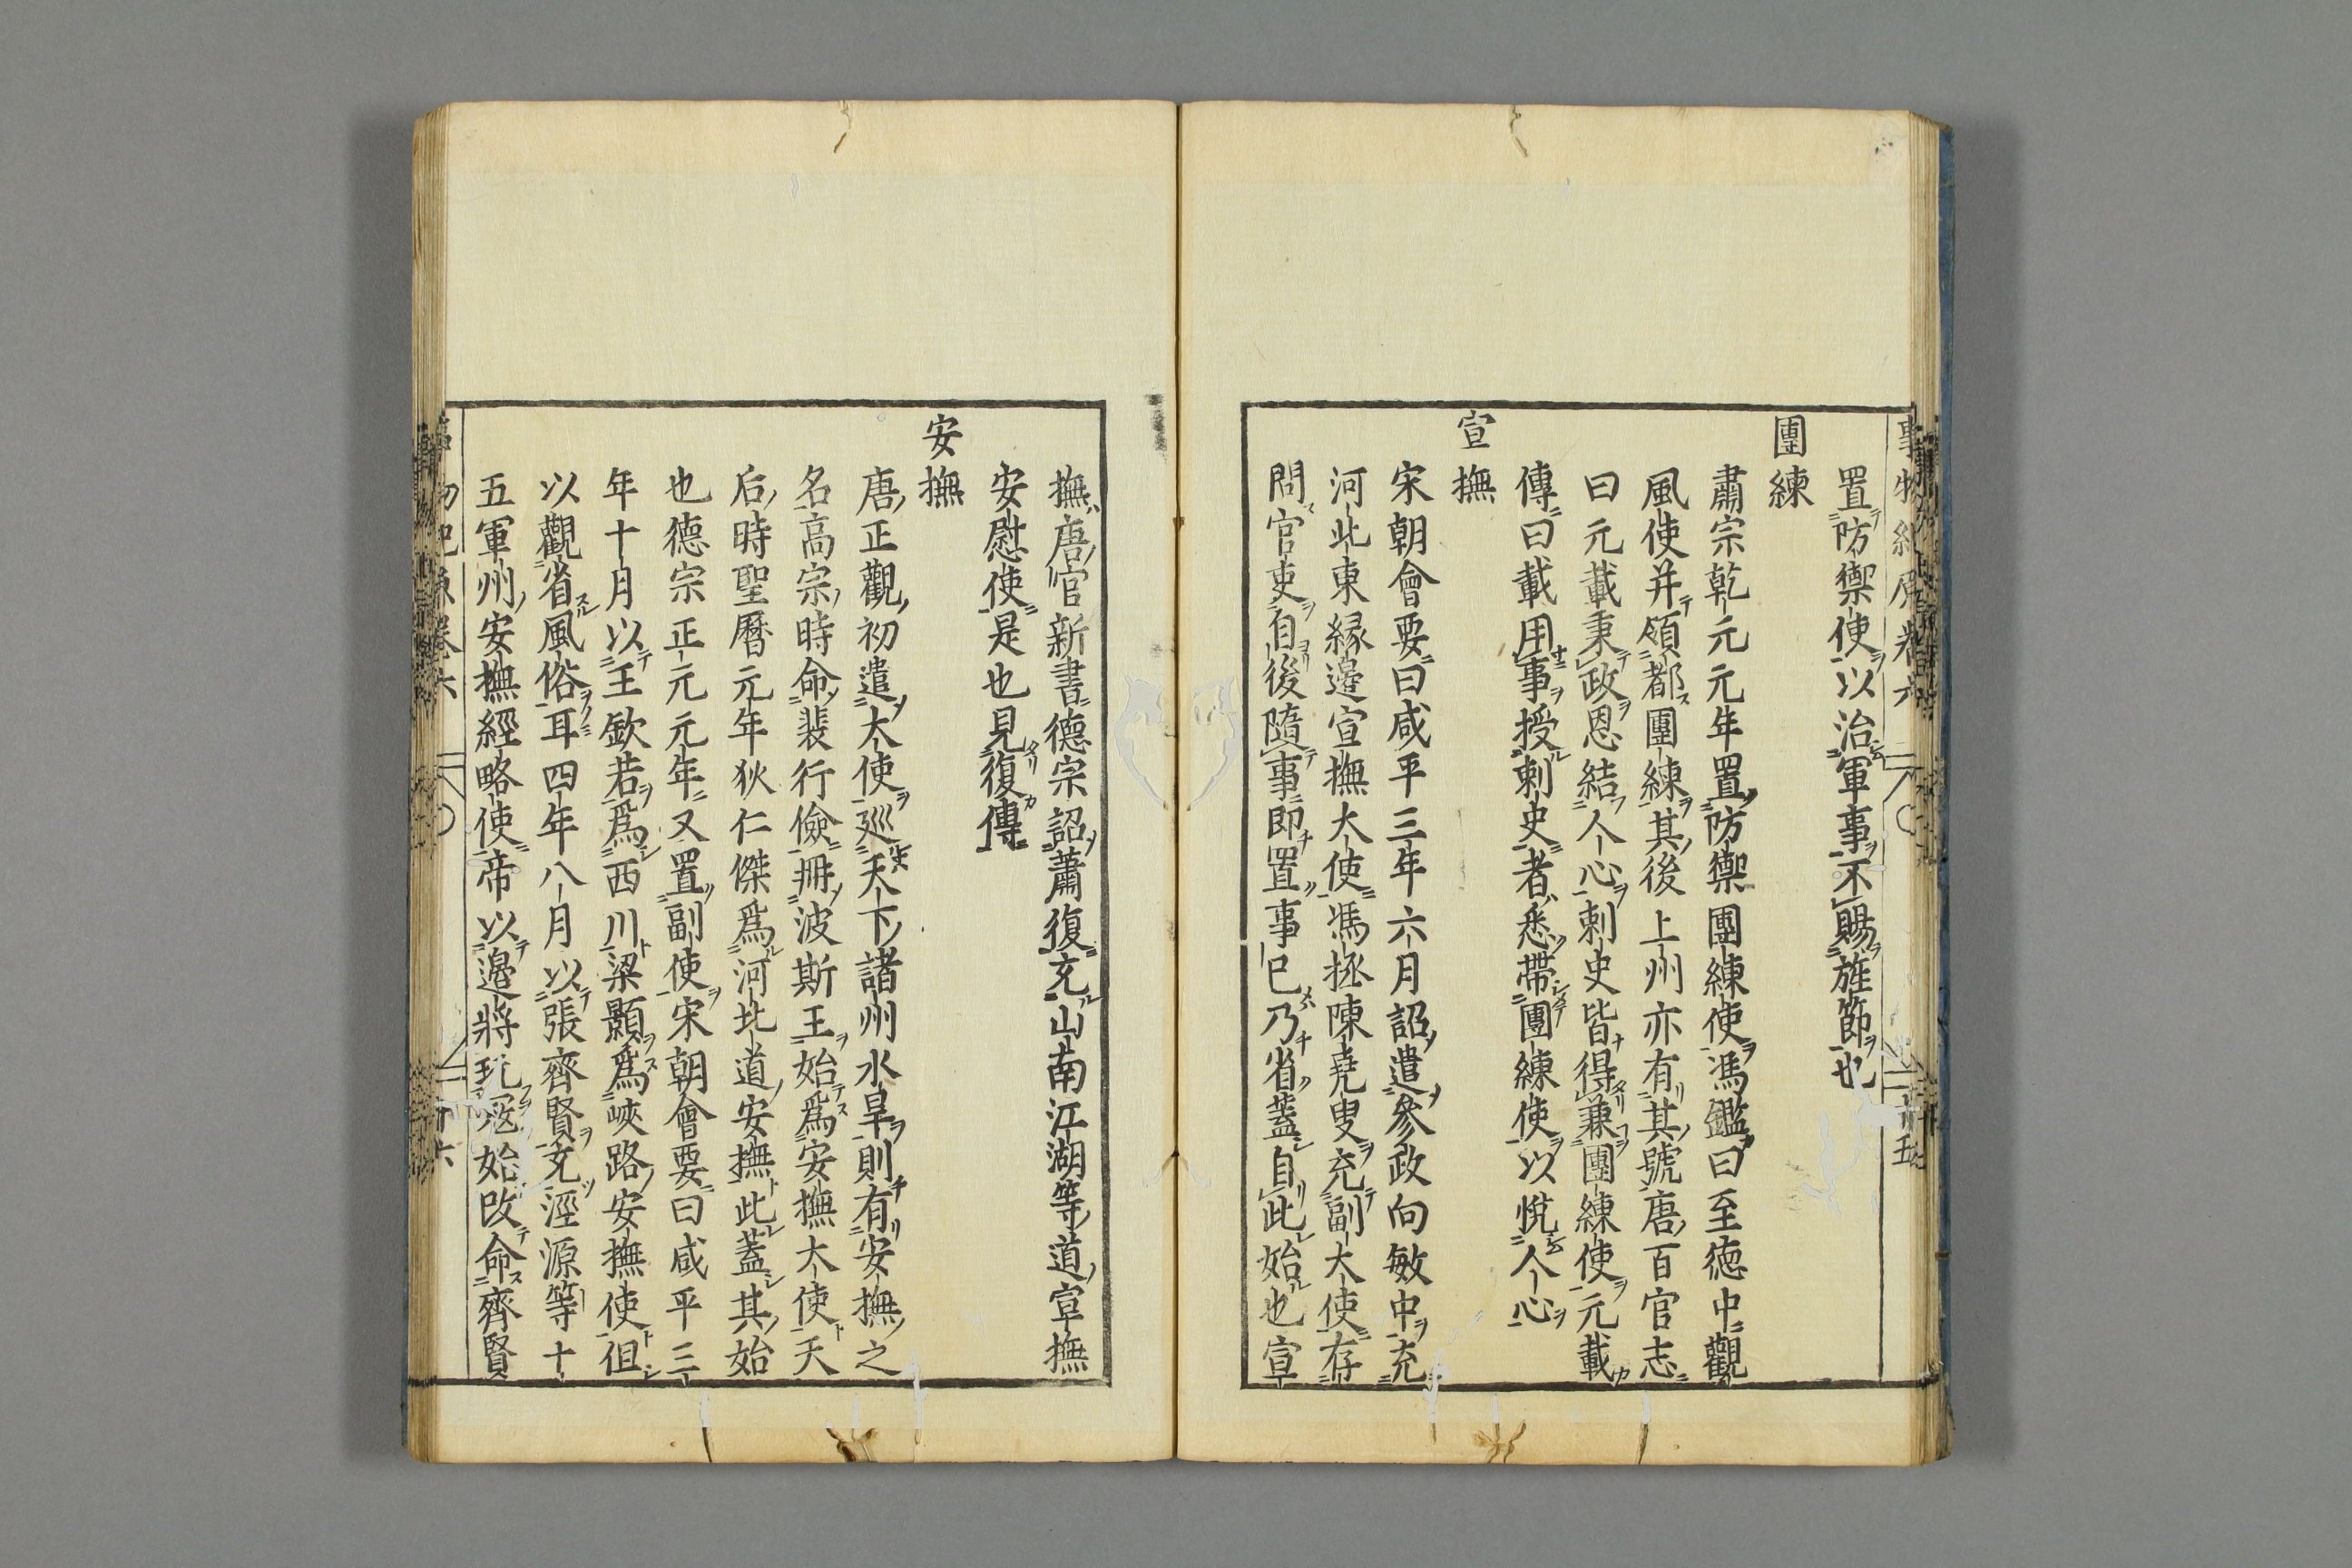 事物紀原卷六 十五
置防禦使以治軍事不賜旌節也
團練
肅宗乾元元年置防禦團練使馮鑑曰至德中觀
風使并領都團練其後上州亦有其號唐百官志
曰元載秉政恩結人心刺史皆得兼團練使元載
傳曰載用事授刺史者悉帶團練使以悅人心
宣撫
宋朝會要曰咸平三年六月詔遣參政向敏中充
河北東緣邊宣撫大使馮拯陳堯叟充副大使存
問官吏自後隨事即置事已乃省蓋自此始也宣
撫唐官新書德宗詔蕭復充山南江湖等道宣撫
安慰使是也見復傳
安撫
唐正觀初遣大使巡天下諸州水旱則有安撫之
名高宗時命裴行儉冊波斯王始爲安撫大使天
后時聖曆元年狄仁傑爲河北道安撫此蓋其始
也德宗正元元年又置副使宋朝會要曰咸平三
年十月以王欽若爲西川梁顥爲峽路安撫使徂
以觀省風俗耳四年八月以張齊賢充涇源等十
五軍州安撫經略使帝以邊將玩寇始改命齊賢